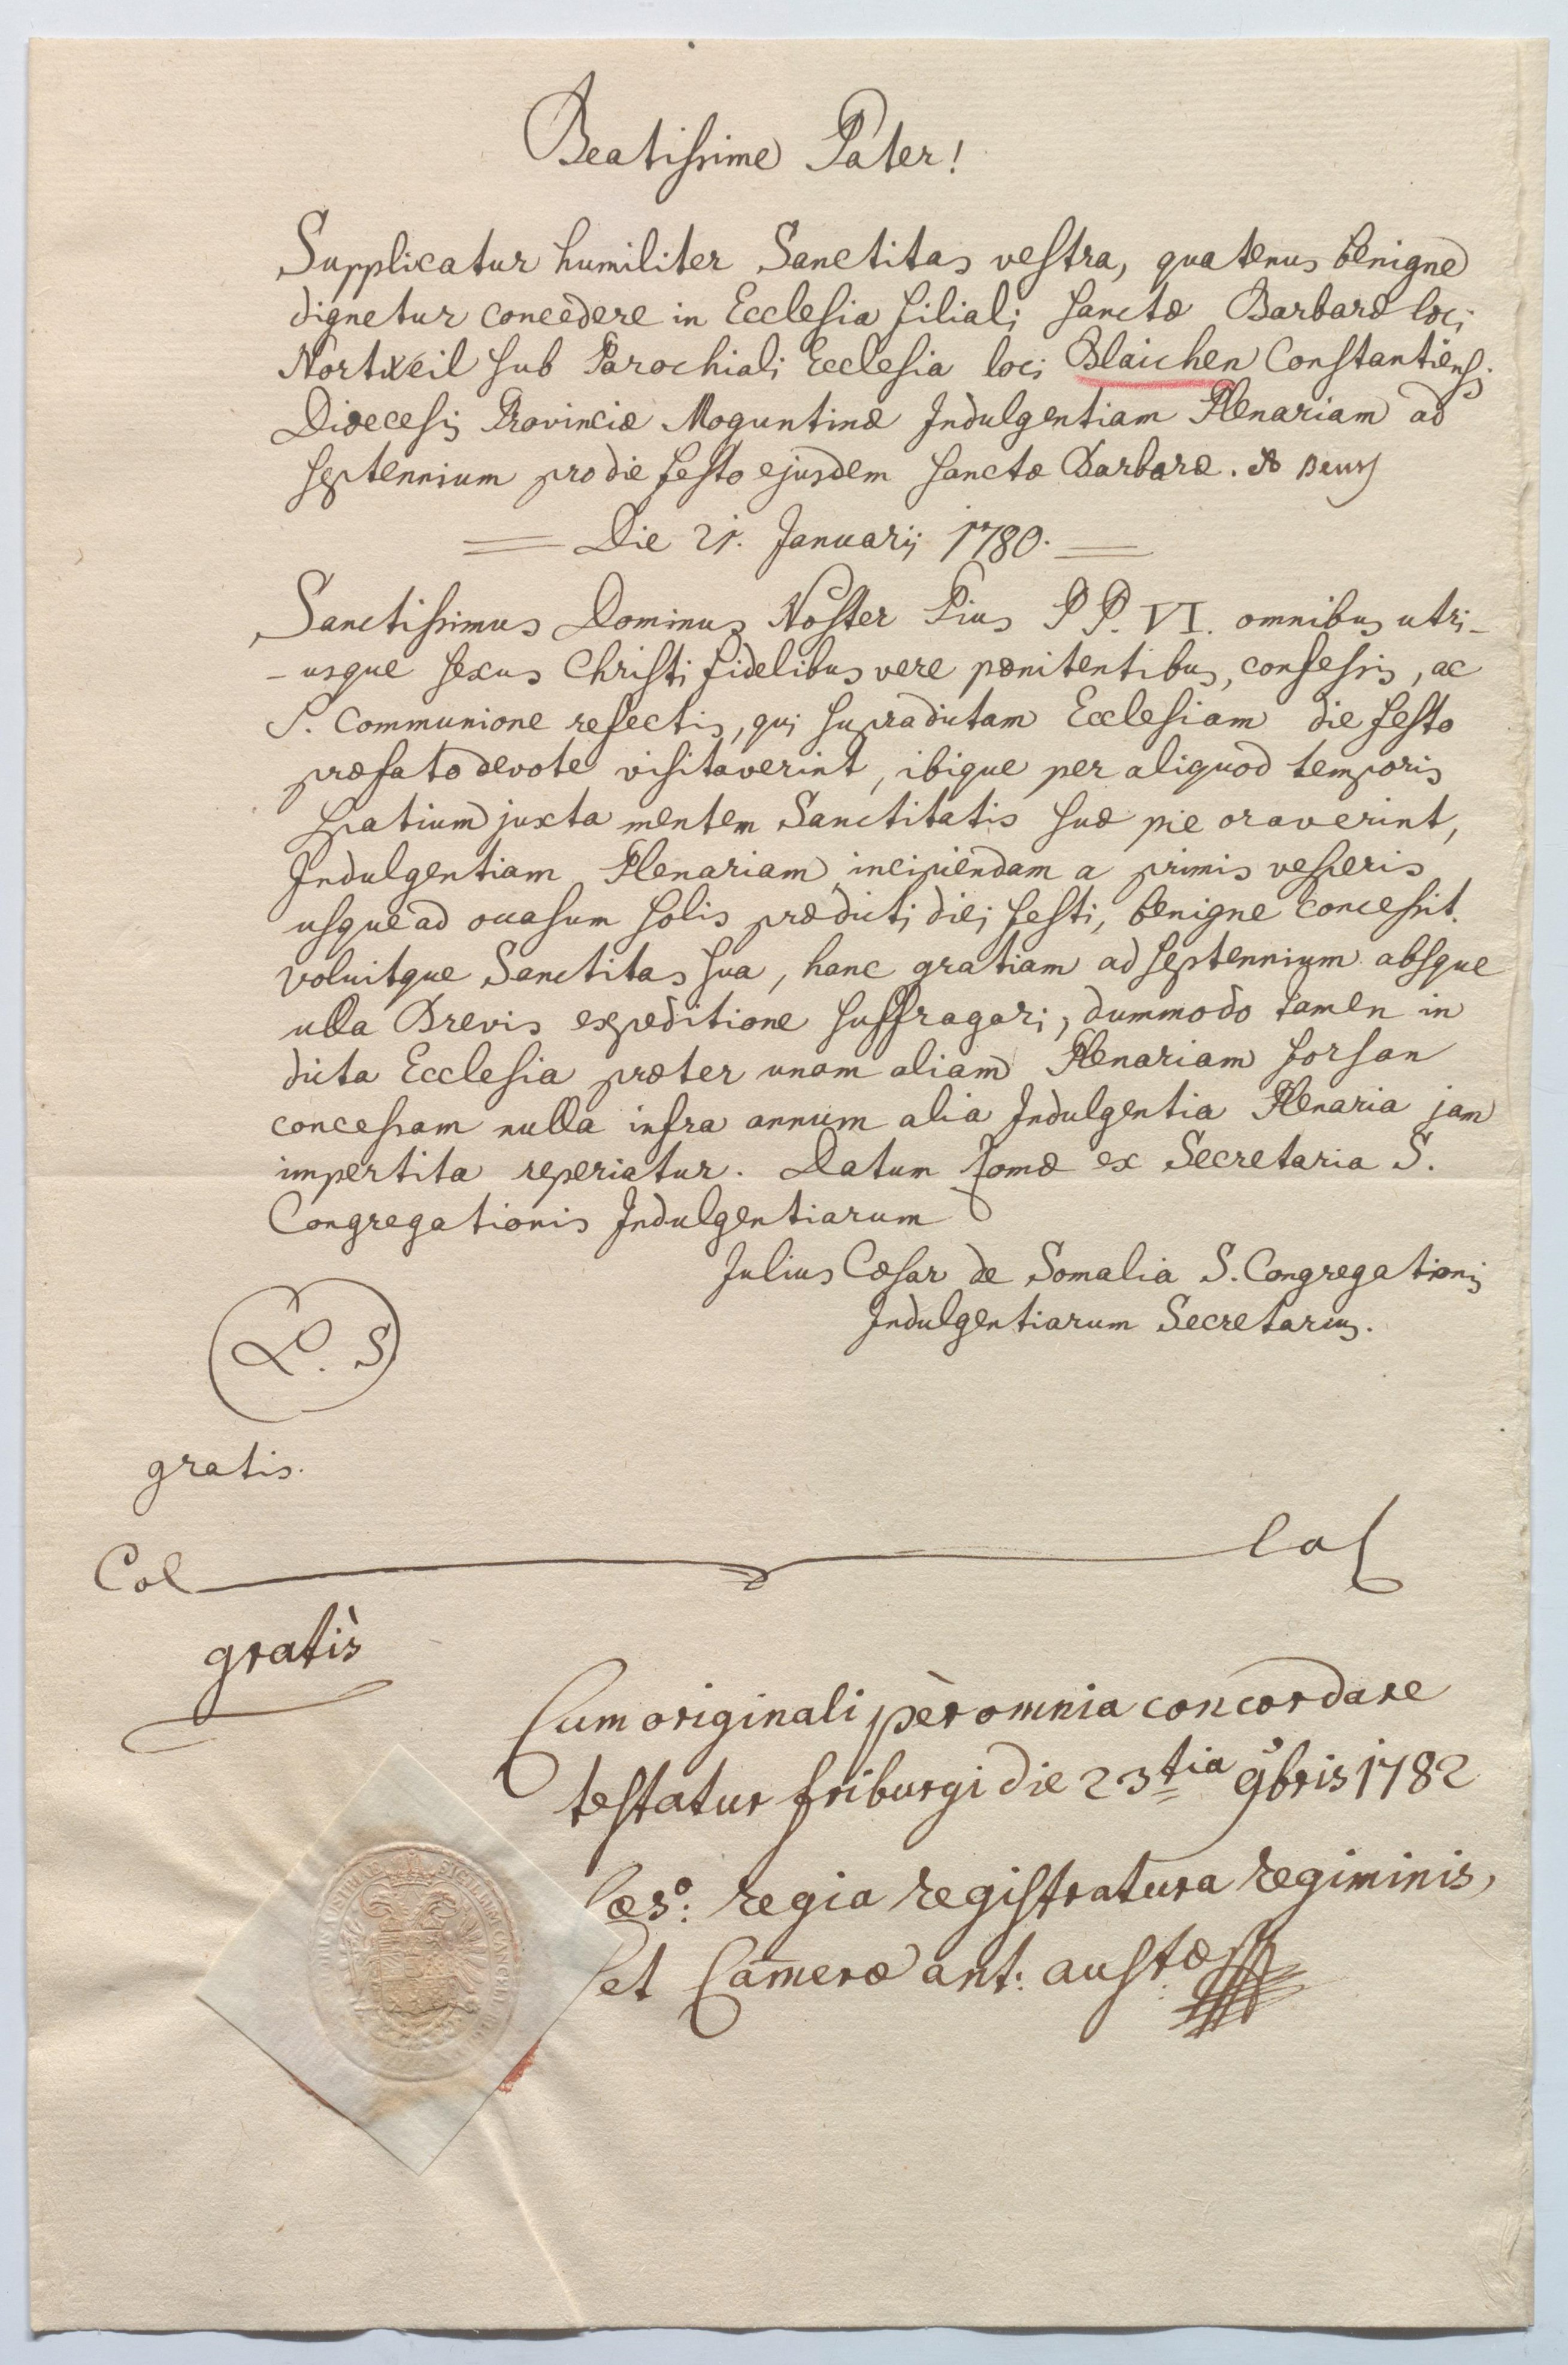 Beatissime Pater!
Supplicatur humiliter Sanctitas vestra, quatenus benigne
dignetur concedere in Ecclesia filiali sanctæ Barbaræ loci
Nortweil sub Parochiali Ecclesia loci Blaichen Constantiensis
Dioecesis Provinciæ Moguntinæ Indulgentiam Plenariam ad
septennium pro die festo ejusdem sanctæ Barbaræ. Deus
Die 21. Januarij 1780.
Sanctissimus Dominus Noster Pius P P. VI. omnibus utri-
- usque sexus Christi fidelibus vere pœnitentibus, confessis, ac
S. Communione refectis, qui supradictam Ecclesiam die festo
præfato devote visitaverint, ibique per aliquod temporis
spatium juxta mentem Sanctitatis suæ pie oraverint,
Indulgentiam Plenariam incipiendam a primis vesperis
usque ad occasum solis prædicti diei festi, benigne concessit.
voluitque Sanctitas sua, hanc gratiam ad septennium absque
ulla Brevis expeditione suffragari; dummodo tamen in
dicta Ecclesia præter unam aliam Plenariam forsan
concessam nulla infra annum alia Indulgentia Plenaria jam
impertita reperiatur. Datum Romæ ex Secretaria S.
Congregationis Indulgentiarum
Julius Cæsar de Somalia S. Congregationis
Indulgentiarum Secretarius.
L. S.
gratis.
Col Col
gratis
Cum originali per omnia concordare
testatur friburgi die 23tia 9bris 1782
Cæs: regia registratura regiminis,
et Cameræ ant: austæ